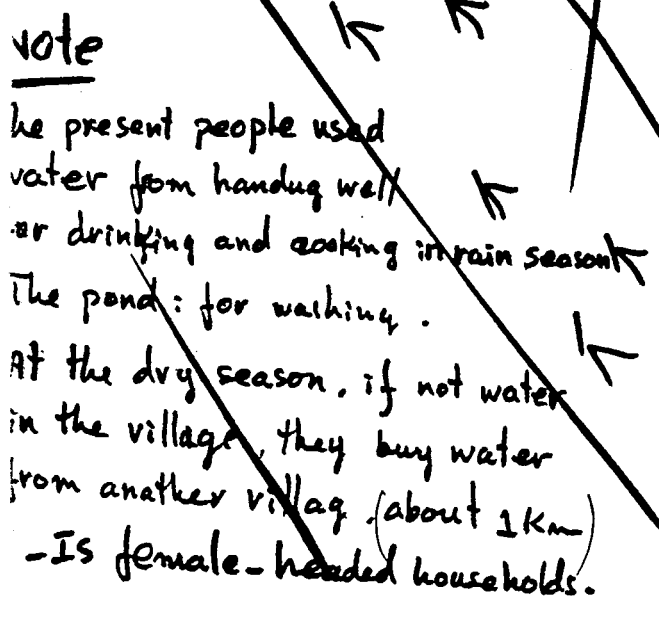 vote
he present people used
vater from handug well
or drinking and cooking in rain season
The pond: for washing.
At the dry season. if not water
in the village, they buy water
from anather villag. (about 1Km)
-Is female-headed households.